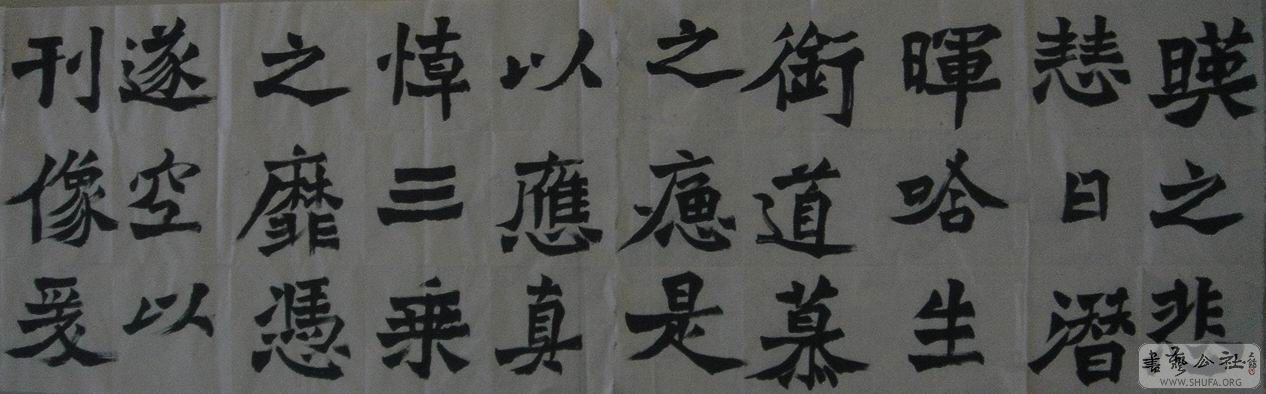 暎之悲
慧日潛
暉唅生
銜道慕
之痛是
以應真
悼三乗
之靡憑
遂空以
刊像爰
書藝公社
WWW.SHUFA.ORG